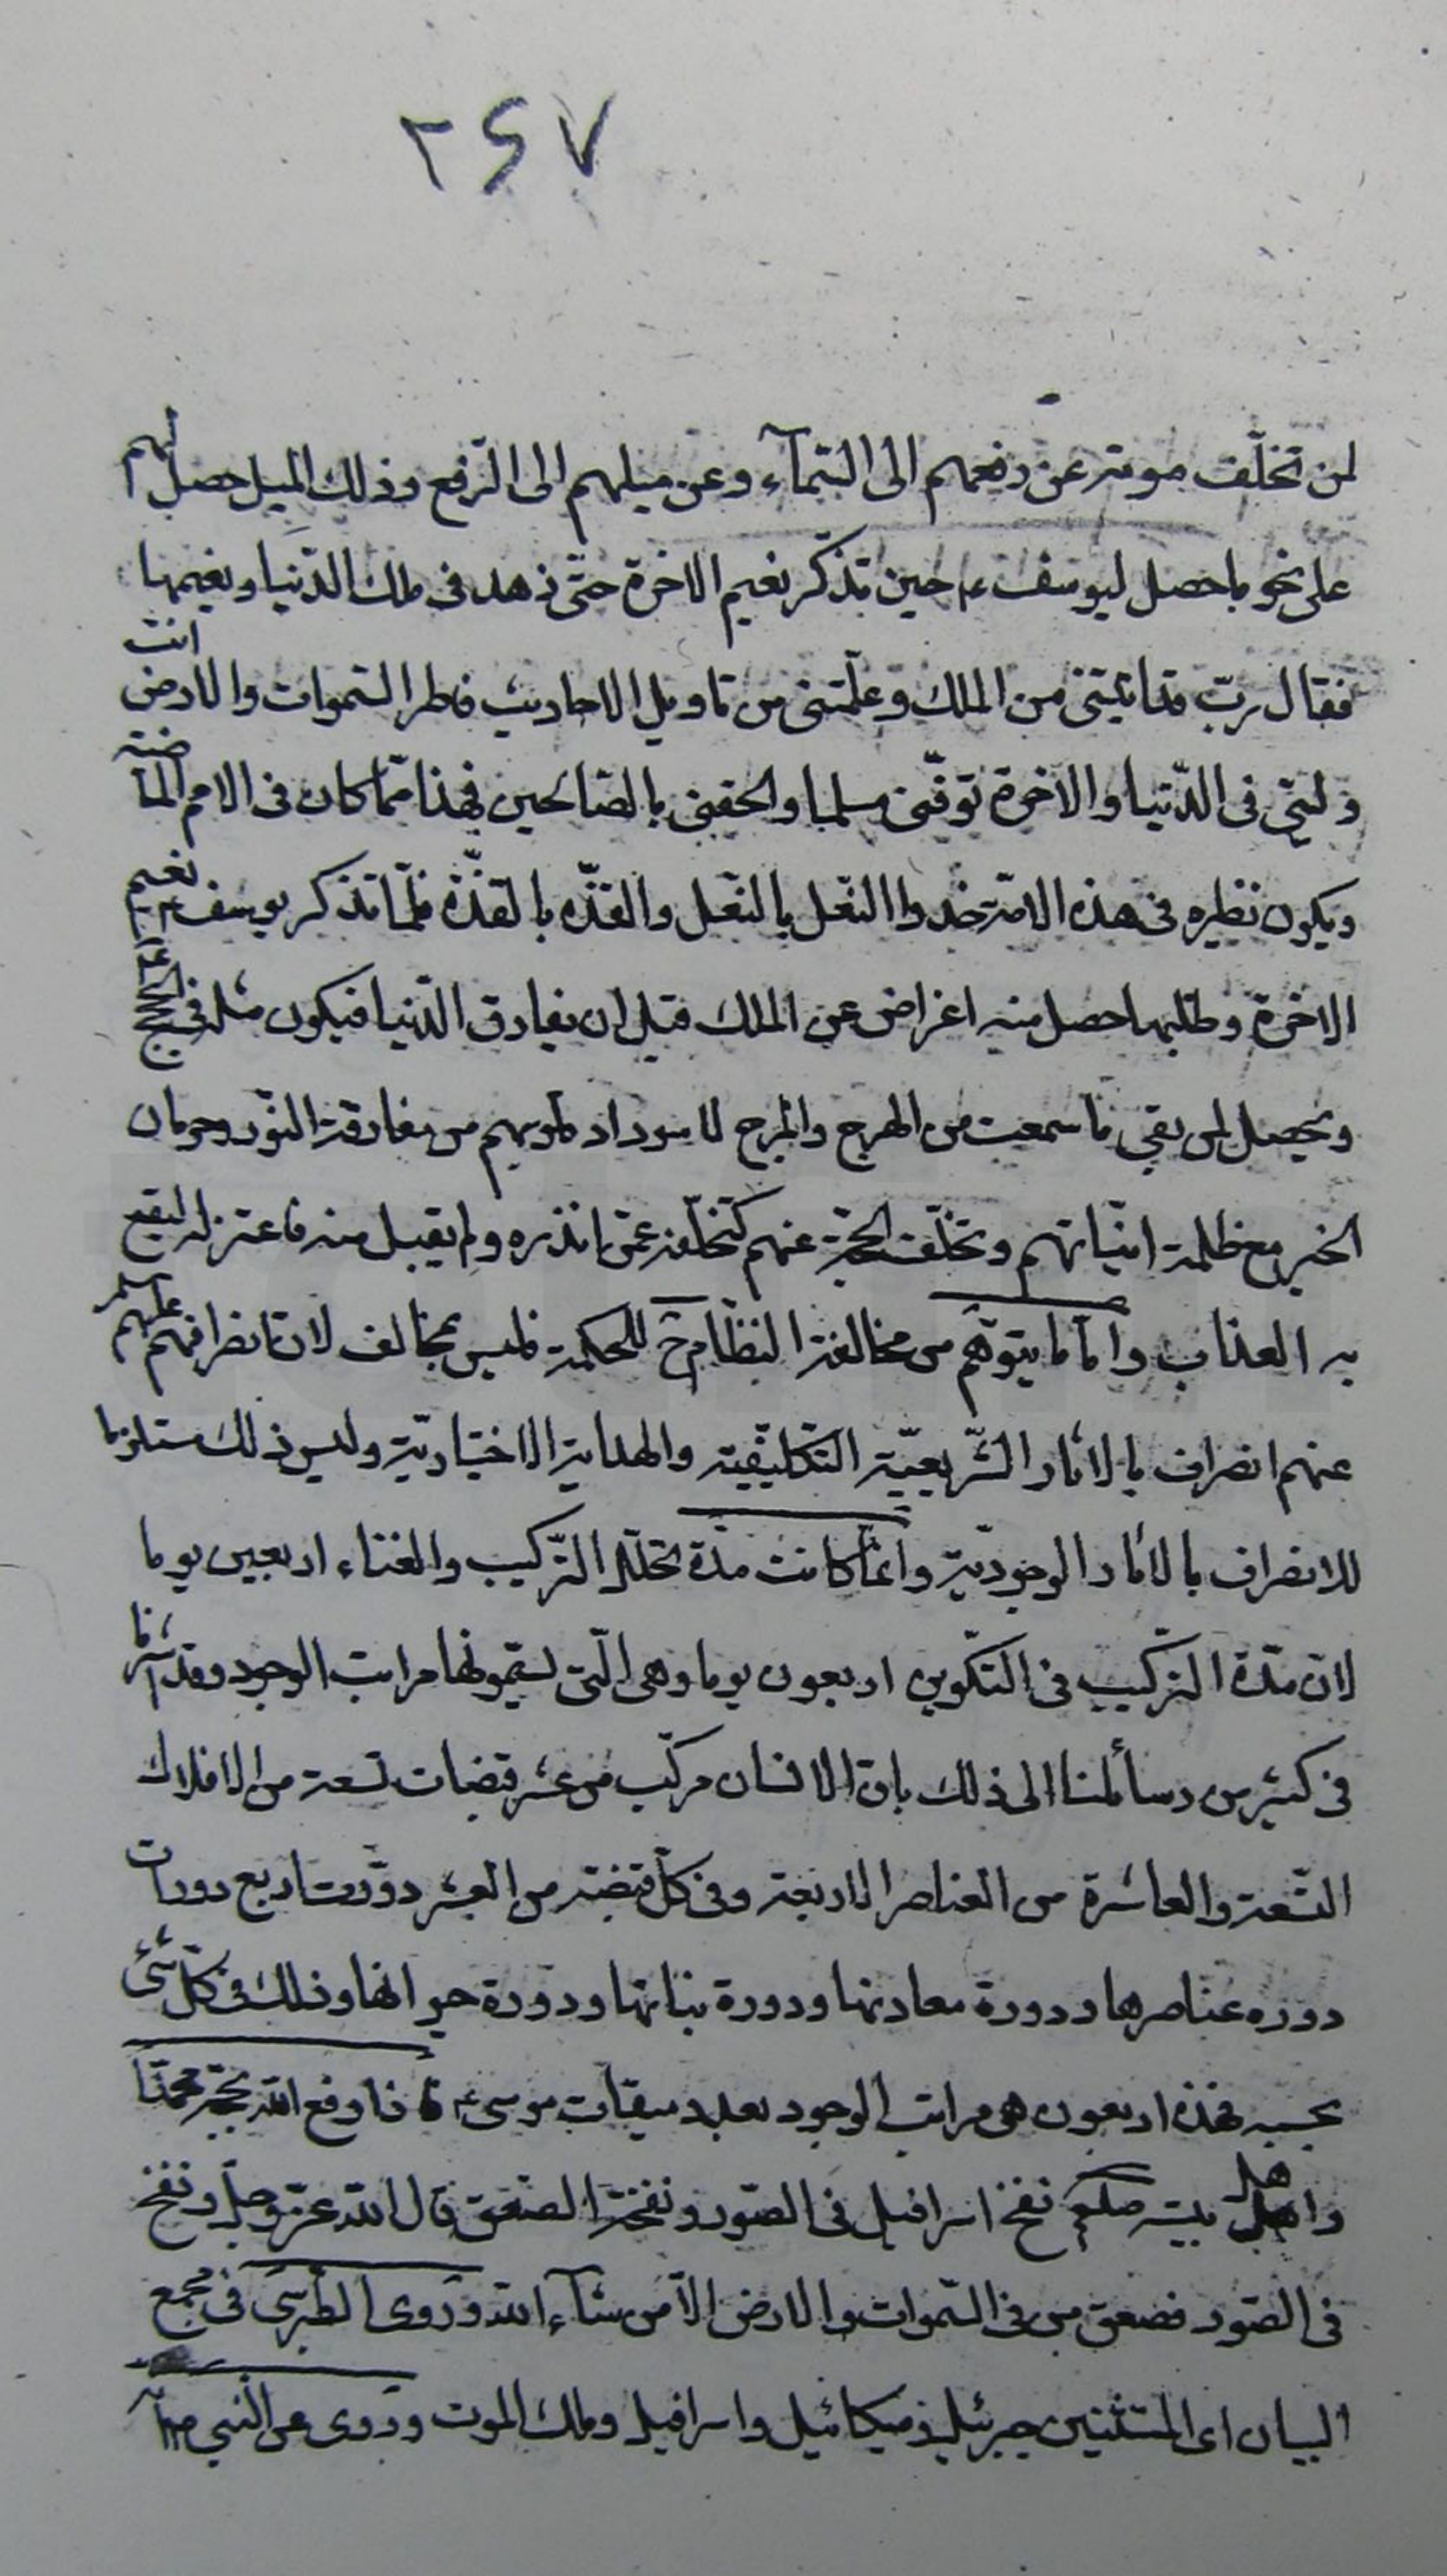 ٢٤٧
لمن تخلّف موته عن رفعهم الى السّمآء وعن ميلهم الى الرّفع وذلك الميل حصل لهم
على نحو ما حصل ليوسف ع حين تذكّر نعيم الاخرة حتّى زهد فى ملك الدّنيا ونعيمها
فقال ربّ قد اتيتنى من الملك وعلّمتنى من تاويل الاحاديث فاطر السّموات والارض انت
وليّى فى الدّنيا والاخرة توفّنى مسلما والحقنى بالصّالحين فهذا ممّا كان فى الامم الماضية
ويكون نظيره فى هذه الامّة حذوا النّعل بالنّعل والقذّه بالقذّة فلمّا تذكر يوسف ع نعيم
الاخرة وطلبها حصل منه اعراض عن الملك قبل ان يفارق الدّنيا فيكون مثله فى الحجج ع
ويحصل لمن بقى ما سمعت من الهرج والمرج لاسوداد قلوبهم من مفارقة النّور وحرمان
الخير مع ظلمة انّيّاتهم وتخلّف الحجّة عنهم كتخلّفه عمّن انذره ولم يقبل منه فاعتزله ليقع
به العذاب وامّا ما يتوهّم من مخالفة النظام ح للحكمة فليس بمخالف لان انصرافهم عليهم السلم
عنهم انصراف بالاثار الشّريعيّة التّكليفيّة والهداية الاختياريّة وليس ذلك مستلزما
للانصراف بالاثار الوجوديّة وانّما كانت مدّة تخلّل التّركيب والفناء اربعين يوما
لان مدّة التركيب فى التّكوين اربعون يوما وهى الّتى يسمّونها مراتب الوجود وقد اشرنا
فى كثير من رسائلنا الى ذلك بان الانسان مركّب من عشر قبضات تسعة من الافلاك
التّسعة والعاشرة من العناصر الاربعة وفى كلّ قبضة من العشر دوّرت اربع دورات
دوره عناصرها ودورة معادنها ودورة نباتها ودورة حيوانها وذلك فى كلّ شىء
بحسبه فهذه اربعون هى مراتب الوجود بعدد ميقات موسى ع فاذا رفع الله بحجّته محمّدا
واهل هل بيته صلعم نفخ اسرافيل فى الصّور ونفخة الصّعق قال الله عزّ وجلّ ونفخ
فى الصّور فصعق من فى السّموات والارض الاّ من شآء الله وروى الطّبرسى فى مجمع
البيان اى المستثنين جبرئيل وميكائيل واسرافيل وملك الموت وروى عن النّبى ص